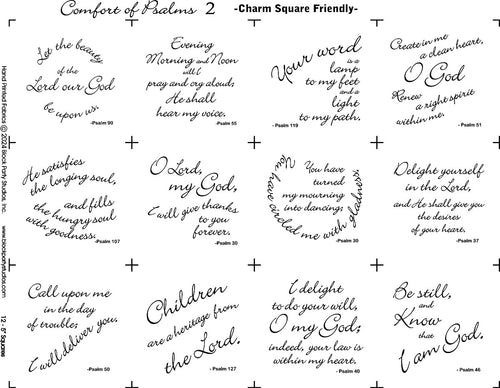 Comfort of Psalms 2 -Charm Square Friendly-
Let the beauty
of the
Lord our God
be upon us.
-Psalm 90
Evening
Morning and Noon
will I
pray and cry aloud;
He shall
hear my voice.
-Psalm 55
Your word
is a
lamp
to my feet
and a
light
to my path.
-Psalm 119
Create in me
a clean heart,
O God
Renew
a right spirit
within me.
-Psalm 51
He satisfies
the longing soul,
and fills
the hungry soul
with goodness.
-Psalm 107
O Lord,
my God,
I will give thanks
to you
forever.
-Psalm 30
You have
turned
my mourning
into dancing;
You have circled me with gladness
-Psalm 30
Delight yourself
in the Lord,
and He shall give you
the desires
of your heart.
-Psalm 37
Call upon me
in the day
of trouble;
I will deliver you.
-Psalm 50
Children
are a heritage from
the Lord.
-Psalm 127
I delight
to do your will,
O my God;
indeed, your law is
within my heart.
-Psalm 40
Be still,
and
Know
that
I am God.
-Psalm 46
Hand Printed Fabrics © 2024 Block Party Studios, Inc. www.blockpartystudios.com 12 - 6" Squares